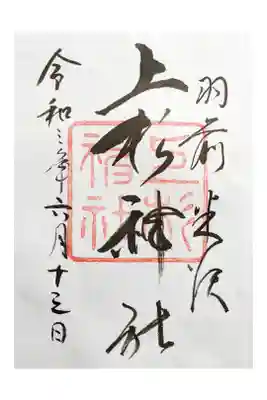 羽前米沢
上杉神社
令和三年六月十三日